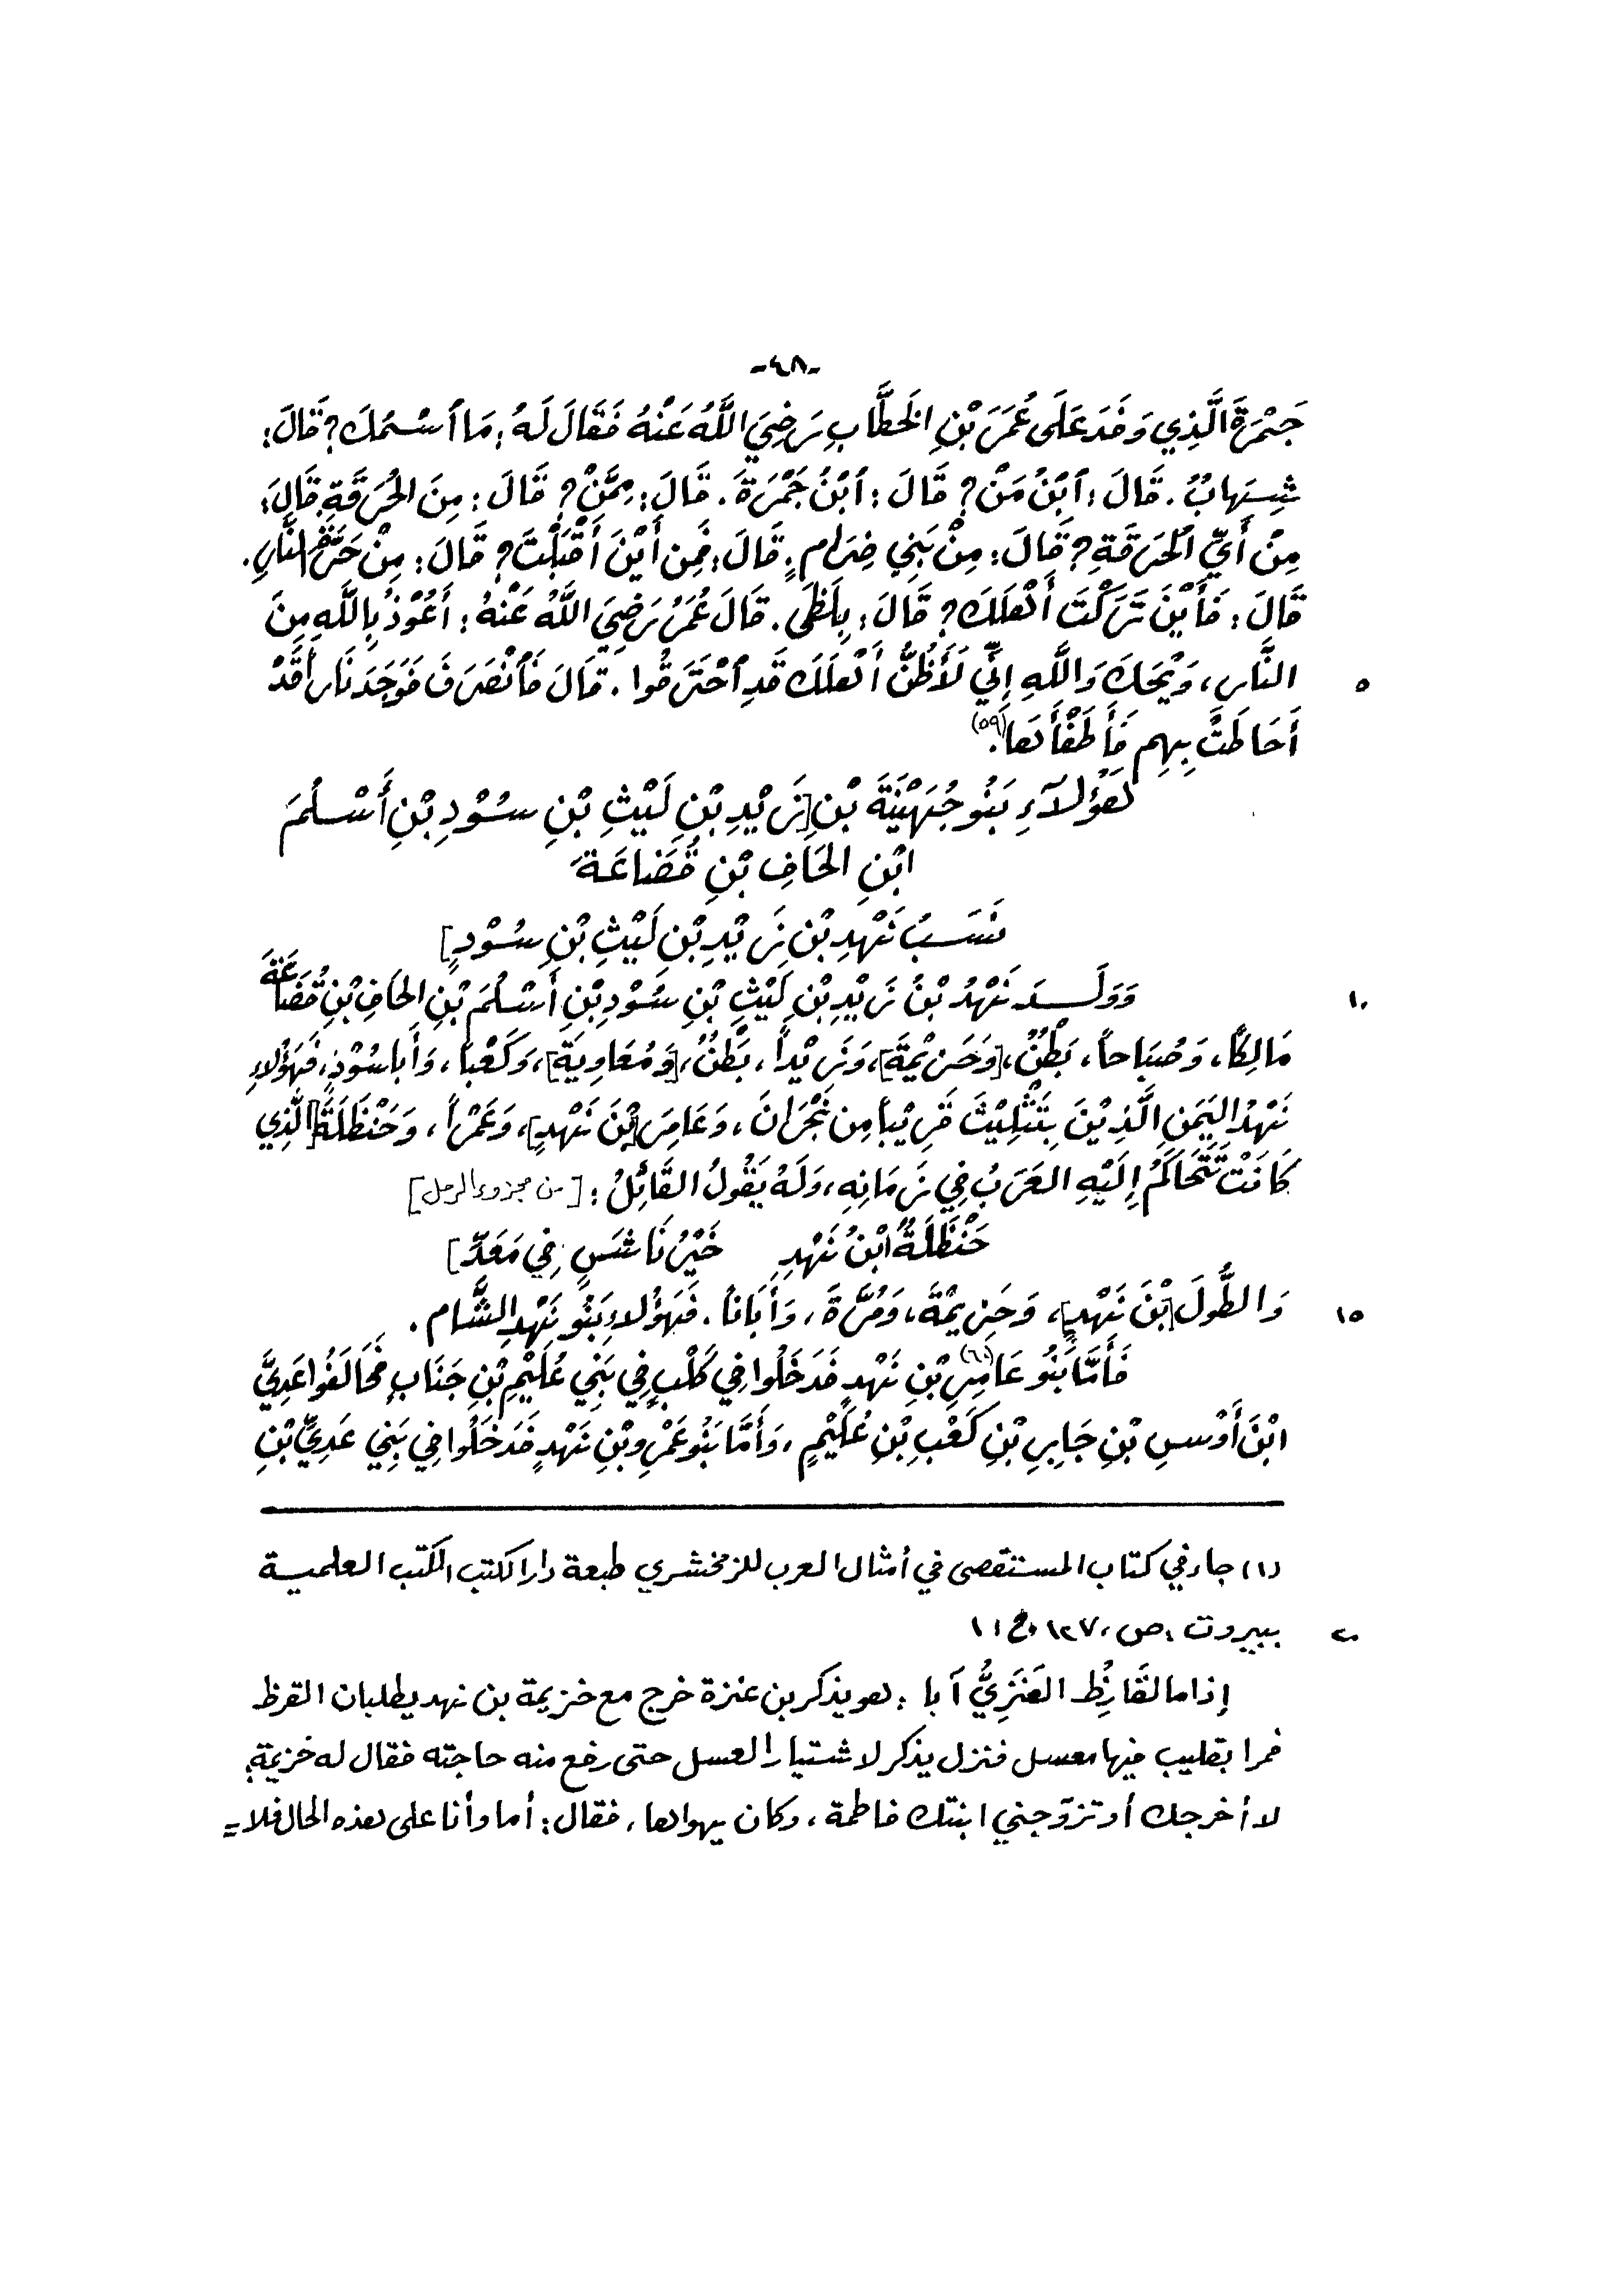 -٤٨-
جَمْرَةَ الَّذِي وَفَدَ عَلَى عُمَرَ بْنِ الخَطَّابِ رَضِيَ اللَّهُ عَنْهُ فَقَالَ لَهُ: مَا ٱسْمُكَ؟ قَالَ:
شِهَابٌ. قَالَ: ٱبْنُ مَنْ؟ قَالَ: ٱبْنُ جَمْرَةَ. قَالَ: مِمَّنْ؟ قَالَ: مِنَ الحُرَقَةِ. قَالَ:
مِنْ أَيِّ الْحُرَقَةِ؟ قَالَ: مِنْ بَنِي ضِرَامٍ. قَالَ: فَمِن أَيْنَ أَقْبَلْتَ؟ قَالَ: مِنْ حَرَّةِ النَّارِ.
قَالَ: فَأَيْنَ تَرَكْتَ أَهْلَكَ؟ قَالَ: بِلَظَى. قَالَ عُمَرُ رَضِيَ اللَّهُ عَنْهُ: أَعُوْذُ بِاللَّهِ مِنَ
٥ النَّارِ، وَيْحَكَ وَاللَّهِ إِنِّي لَأَظُنُّ أَهْلَكَ قَدِ ٱحْتَرَقُوا. قَالَ فَٱنْصَرَفَ فَوَجَدَ نَاراً قَدْ
أَحَاطَتْ بِهِم فَأَطْفَأَهَا.(٥٩)
هَؤُلَآءِ بَنُو جُهَيْنَةَ بْنِ [زَيْدِ بْنِ لَيْثِ بْنِ سُوْدِ بْنِ أَسْلُمَ
ابْنِ الحَافِ بْنِ قُضَاعَةَ
نَسَبُ نَهْدِ بْنِ زَيْدِ بْنِ لَيْثِ بْنِ سُوْدٍ]
١٠ وَوَلَدَ نَهْدُ بْنُ زَيْدِ بْنِ لَيْثِ بْنِ سُوْدِ بْنِ أَسْلُمَ بْنِ الحَافِ بْنِ قُضَاعَةَ
مَالِكاً، وَصُبَاحاً، بَطْنٌ، [وَحَزِيْمَةَ]، وَزَيْداً، بَطْنٌ، [وَمُعَاوِيَةَ]، وَكَعْباً، وَأَبا سُوْدٍ، فَهَؤُلاءِ
نَهْدُ اليَمَنِ الَّذِيْنَ بِتَثْلِيْثَ قَرِيْباً مِن نَجْرَانَ، وَعَامِرَ [بْنَ نَهْدٍ]، وَعَمْراً، وَحَنْظَلَةَ [الَّذِي
كَانَتْ تَتَحَاكَمُ إِلَيْهِ العَرَبُ فِي زَمَانِهِ، وَلَهُ يَقُولُ القَائِلُ: [من مجزوء الرمل]
حَنْظَلَةُ ابْنُ نَهْدِ خَيْرُ نَاشَسٍ فِي مَعَدِّ]
١٥ وَالطُّولَ [بْنَ نَهْدٍ]، وَحَزِيْمَةَ، وَمُرَّةَ، وَأَبَاناً. فَهَؤُلاءِ بَنُو نَهْدِ الشَّام.
فَأَمَّا بَنُو عَامِرِ(٦٠) بْنِ نَهْدٍ فَدَخَلُوا فِي كَلْبٍ فِي بَنِي عُلَيْمِ بْنِ جَنَابٍ فَحَالَفُوا عَدِيَّ
ابْنَ أَوْسِ بْنِ جَابِرِ بْنِ كَعْبِ بْنِ عُلَيْمٍ، وَأَمَّا بَنُو عَمْرِو بْنِ نَهْدٍ فَدَخَلُوا فِي بَنِي عَدِيِّ بْنِ
(١) جاء في كتاب المستقصى في أمثال العرب للزمخشري طبعة دار الكتب الكتب العلمية
٢٠ ببيروت، ص، ١٢٧، ج١١
إذا ما القَارِظُ العَنَزِيُّ آبا: هو يذكر بن عنزة خرج مع خزيمة بن نهد يطلبان القرظ
فمرا بقليب فيها معسل فنزل يذكر لاشتيار العسل حتى رفع منه حاجته فقال له خزيمة:
لا أخرجك أو تزوّجني ابنتك فاطمة، وكان يهواها، فقال: أما وأنا على هذه الحال فلا =